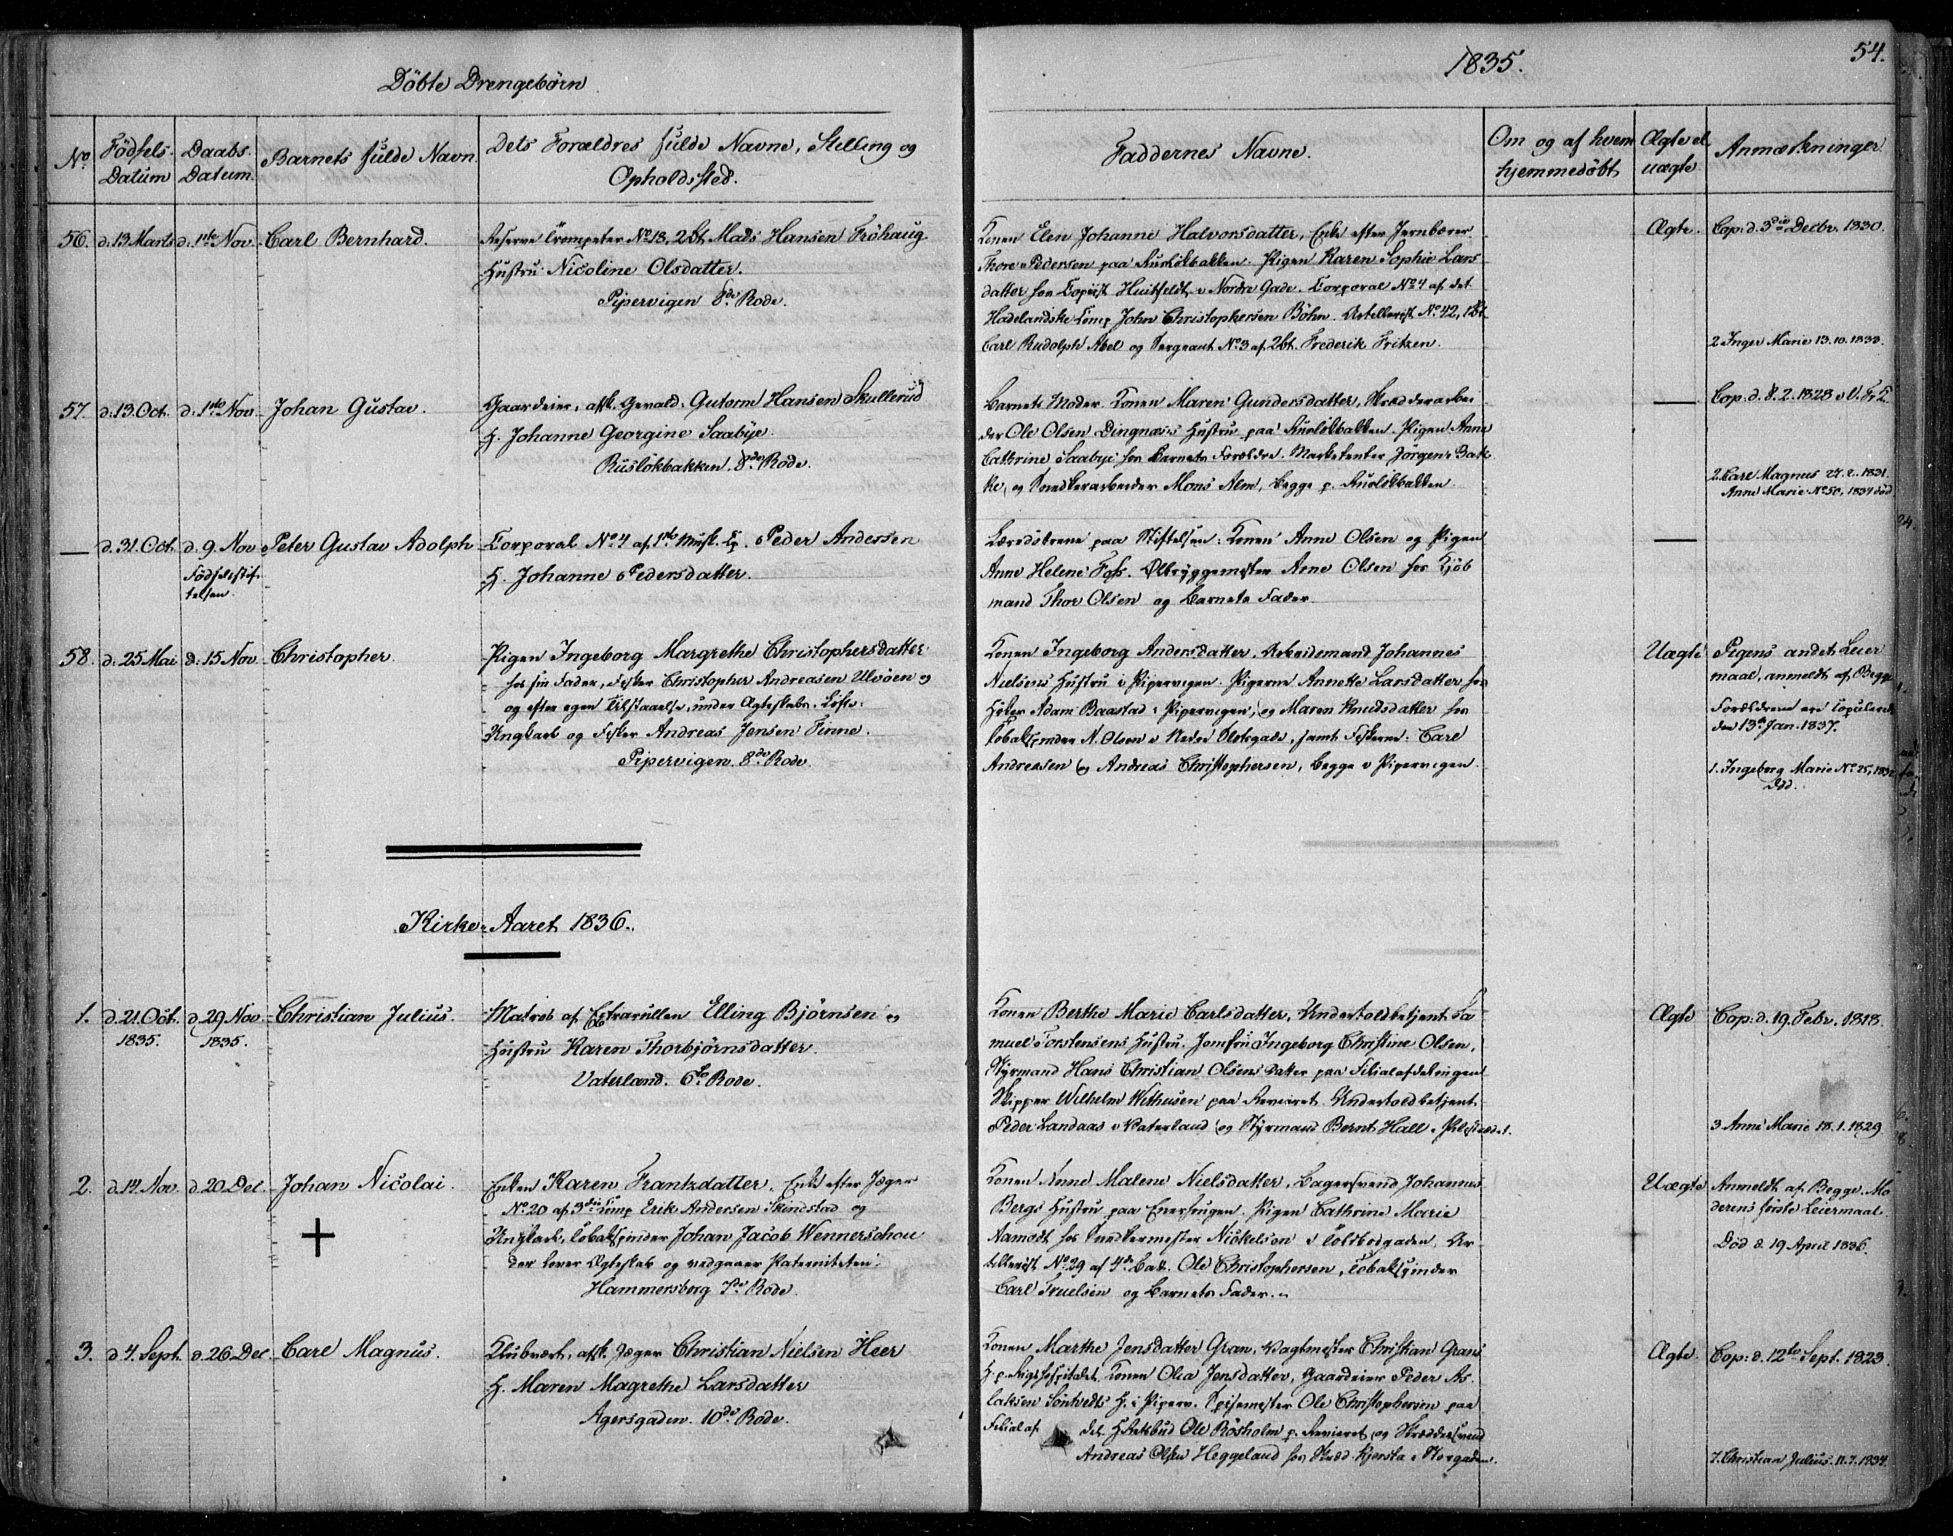 Döbte Drengebörn
1835.
54.
No
Födsels Datum
Daabs Datum
Barnets fulde Navn
Dets Forældres fulde Navne, Stilling og Opholdssted.
Faddernes Navne.
Om og af hvem hjemmedöbt
Ægte el uægte
Anmærkninger
56. d. 13 Marts d. 1ste Nov. Carl Bernhard.
Reserve Trompeter No 13, 2 Bt Mads Hansen Fröhaug
Hustru Nicoline Olsdatter.
Pipervigen 8de Rode.
Konen Elen Johanne Halvorsdatter, Enke efter Jernbærer
Thore Pedersen paa Ruslökbakken. Pigen Karen Sophie Lars
datter hos Copiist Huitfeldt i Nordre Gade. Corporal No 4 af det
Hadelandske Comp John Christophersen Böhn. Artellerist No 42, 1 Bt
Carl Rudolph Abel og Sergeant No 3 af 2 Bt. Frederik Fritzen.
Ægte.
Cop: d. 3die Decbr. 1830.
2 Inger Marie 13.10.1833.
57. d. 13 Oct. d. 1ste Nov Johan Gustav.
Gaardeier, afsk. Gevald: Gutorm Hansen Skullerud
H. Johanne Georgine Saabye.
Ruslökbakken. 8de Rode.
Barnets Moder. Konen Maren Gundersdatter, Skrædderarbei
der Ole Olsen Dingnæss Hustru paa Ruslökbakken. Pigen Anne
Cathrine Saabye hos Barnets Forældre. Marketenter Jörgen Bak
ke, og Snedkerarbeider Mons Alm, begge p. Ruslökbakken
Cop: d. 8.2.1828 i V. Fr. K.
2. Carl Magnus 27.2.1831.
Anne Marie No 50, 1834 död
d. 31 Oct. d. 9 Nov Peter Gustav Adolph
Födselsstif
telsen
Corporal No 4 af 1ste Musk. Cp. Peder Andersen
H. Johanne Pedersdatter.
paa Stiftelsen: Konen Anne Olsen og Pigen
Anne Helene Foss. Ölbryggemester Arne Olsen hos Kjöb
mand Thor Olsen og Barnets Fader.
58. d. 25 Mai d. 15 Nov Christopher.
Pigen Ingeborg Margrethe Christophersdatter
hos sin Fader, Fisker Christopher Andreasen Ulvöen og
og efter egen Tilstaaelse, under Ægteskabs-Löfte:
Ungkarl og Fisker Andreas Jensen Finne.
Pipervigen. 8de Rode.
Konen Ingeborg Andersdatter. Arbeidsmand Johannes
Nielsens Hustru i Pipervigen. Pigerne Annette Larsdatter hos
Höker Adam Baastad i Pipervigen, og Maren Knudsdatter hos
Tobakspinder N. Olsen i Nedre Slotsgade, samt Fiskerne: Carl
Andreasen og Andreas Christophersen, begge i Pipervigen.
Uægte
Pigens andet Leier
maal, anmeldt af Begge
Forældrene ere copulerede
den 13de Jan. 1837.
1. Ingeborg Marie No 25, 1832
Död.
Kirke-Aaret 1836.
1. d. 21 Oct. 1835. d. 29 Nov 1835. Christian Julius.
Matros af Extrarullen Elling Bjørnsen og
Hustru Karen Thorbjørnsdatter.
Vaterland. 6te Rode.
Konen Berthe Marie Carlsdatter, Undertoldbetjent Sa
muel Torstensens Hustru. Jomfru Ingeborg Christine Olsen,
Styrmand Hans Christian Olsens Datter paa Filialafdelingen
Skipper Wilhelm Withusen paa Revieret. Undertoldbetjent
Peder Landaas i Vaterland og Styrmand Bernt Hall i Pilestrædet.
Ægte
Cop: d. 19. Febr. 1818.
3 Anne Marie 18.1.1829
2. d. 14 Nov. d. 20 Dec. Johan Nicolai.
Enken Karen Frantzdatter. Enke efter Jæger
No 20 af 3die Comp Erik Andersen Skindstad og
Ungkarl, Tobakspinder Johan Jacob Wennerschou
der lover Ægteskab og vedgaaer Paterniteten:
Hammersborg 7de Rode.
Konen Anne Malene Nielsdatter, Bagersvend Johannes
Bergs Hustru paa Enerhougen. Pigen Cathrine Marie
Aamodt hos Snedkermester Nickelsen i Toldbodgaden. Ar
tellerist No 29 af 4de Batt. Ole Christophersen, Tobakspinder
Carl Truelsen og Barnets Fader.
Uægte
Anmeldt af Begge. Mo
derens förste Leiermaal.
Död d. 19 April 1836.
3. d. 4. Sept. d. 26 Dec Carl Magnus.
Klubvært, afsk. Jæger Christian Nielsen Heer
H. Maren Magrethe Larsdatter
Agersgaden. 10de Rode.
Konen Marthe Jensdatter Gran, Vagtmester Christian Grans
H. p. Rigshospitalet. Konen Olea Jensdatter, Gaardeier Peder As
laksen Söntvedts H. i Piperv. Spisemester Ole Christophersen paa
Filialaf del. Ole Rösholm p. Revieret og Skræddersvend
Andreas Olsen Heggeland hos Skræd. Kjersta i Storgaden.
Ægte.
Cop: d. 12te Sept. 1823.
7. Christian Julius. 11.7.1834.